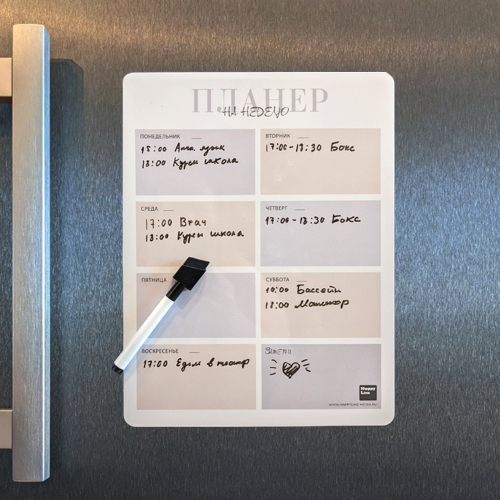 ПЛАНЕР
НА НЕДЕЛЮ
ПОНЕДЕЛЬНИК
15:00 Англ язык
18:00 Курсы школа
ВТОРНИК
17:00-18:30 Бокс
СРЕДА
17:00 Врач
18:00 Курсы школа
ЧЕТВЕРГ
17:00-18:30 Бокс
ПЯТНИЦА
СУББОТА
10:00 Бассейн
18:00
ВОСКРЕСЕНЬЕ
17:00 Едем в театр
Заметки
Happy
Line